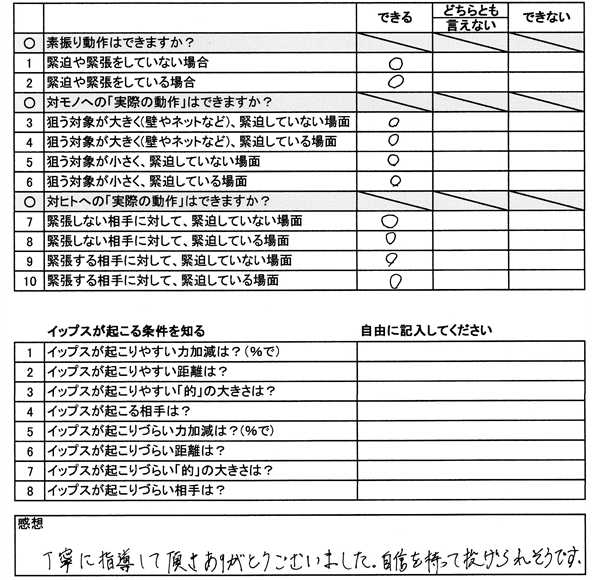 できる どちらとも言えない できない
○ 素振り動作はできますか？
1 緊迫や緊張をしていない場合 ○
2 緊迫や緊張をしている場合 ○
○ 対モノへの「実際の動作」はできますか？
3 狙う対象が大きく(壁やネットなど)、緊迫していない場面 ○
4 狙う対象が大きく(壁やネットなど)、緊迫している場面 ○
5 狙う対象が小さく、緊迫していない場面 ○
6 狙う対象が小さく、緊迫している場面 ○
○ 対ヒトへの「実際の動作」はできますか？
7 緊張しない相手に対して、緊迫していない場面 ○
8 緊張しない相手に対して、緊迫している場面 ○
9 緊張する相手に対して、緊迫していない場面 ○
10 緊張する相手に対して、緊迫している場面 ○
イップスが起こる条件を知る 自由に記入してください
1 イップスが起こりやすい力加減は？(％で)
2 イップスが起こりやすい距離は？
3 イップスが起こりやすい「的」の大きさは？
4 イップスが起こる相手は？
5 イップスが起こりづらい力加減は？(％で)
6 イップスが起こりづらい距離は？
7 イップスが起こりづらい「的」の大きさは？
8 イップスが起こりづらい相手は？
感想
丁寧に指導して頂きありがとうございました。自信を持って投げられそうです。